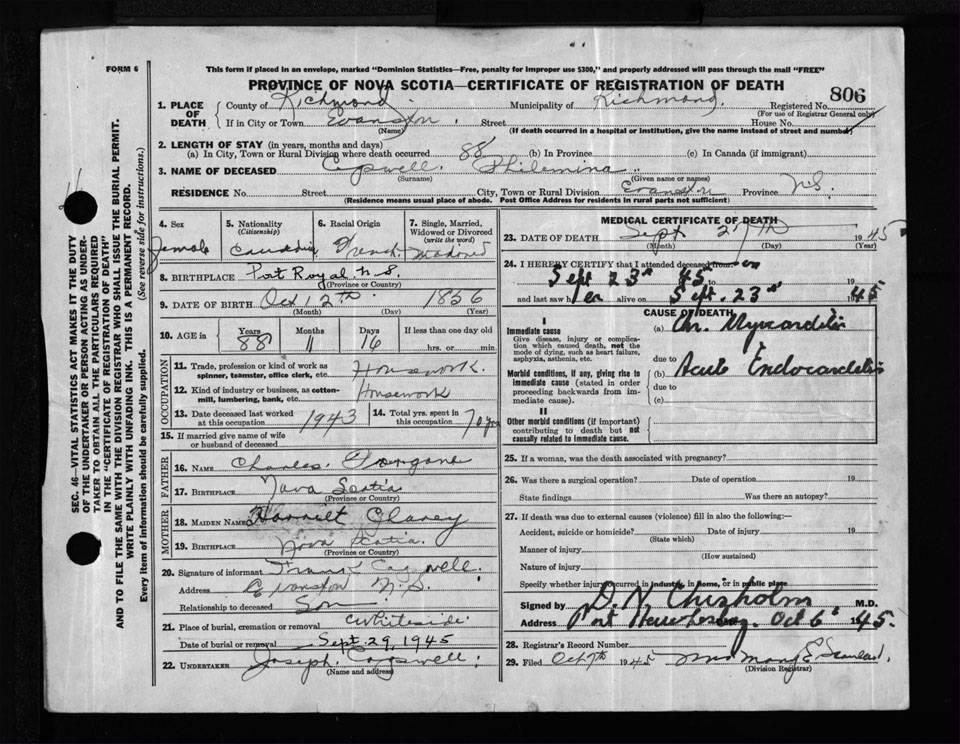 FORM 6
This form if placed in an envelope, marked "Dominion Statistics—Free, penalty for improper use $300," and properly addressed will pass through the mail "FREE"
PROVINCE OF NOVA SCOTIA—CERTIFICATE OF REGISTRATION OF DEATH
806
1. PLACE OF DEATH
County of Richmond Municipality of Richmond Registered No.
(For use of Registrar General only)
If in City or Town Evanston Street House No.
(Name) (If death occurred in a hospital or institution, give the name instead of street and number)
2. LENGTH OF STAY (in years, months and days)
(a) In City, Town or Rural Division where death occurred 88 (b) In Province (c) In Canada (if immigrant)
3. NAME OF DECEASED Capwell Philemina
(Surname) (Given name or names)
RESIDENCE No. Street City, Town or Rural Division Evanston Province N.S.
(Residence means usual place of abode. Post Office Address for residents in rural parts not sufficient)
4. Sex 5. Nationality (Citizenship) 6. Racial Origin 7. Single, Married, Widowed or Divorced (write the word)
Female Canadian French Widowed
8. BIRTHPLACE Port Royal N.S.
(Province or Country)
9. DATE OF BIRTH Oct 12th 1856
(Month) (Day) (Year)
10. AGE in Years Months Days If less than one day old
88 11 16 hrs. or min.
OCCUPATION
11. Trade, profession or kind of work as spinner, teamster, office clerk, etc. Housework.
12. Kind of industry or business, as cotton-mill, lumbering, bank, etc. Housework
13. Date deceased last worked at this occupation 1943 14. Total yrs. spent in this occupation 70 yrs
15. If married give name of wife or husband of deceased
FATHER
16. NAME Charles
17. BIRTHPLACE Nova Scotia
(Province or Country)
MOTHER
18. MAIDEN NAME Harriet Clancy
19. BIRTHPLACE Nova Scotia.
(Province or Country)
20. Signature of informant Frank Capwell.
Address Evanston N.S.
Relationship to deceased Son
21. Place of burial, cremation or removal Whiteside.
Date of burial or removal Sept. 29, 1945
22. UNDERTAKER Joseph Capwell.
(Name and address)
MEDICAL CERTIFICATE OF DEATH
23. DATE OF DEATH Sept 27th 1945
(Month) (Day)
24. I HEREBY CERTIFY that I attended deceased from
Sept 23rd 45 to 19
and last saw her alive on Sept. 23rd 1945
CAUSE OF DEATH
I
Immediate cause
Give disease, injury or complication which caused death, not the mode of dying, such as heart failure, asphyxia, asthenia, etc.
(a) Chr. Myocarditis
due to
Morbid conditions, if any, giving rise to immediate cause (stated in order proceeding backwards from immediate cause).
(b) Acute Endocarditis
due to
(c)
II
Other morbid conditions (if important) contributing to death but not causally related to immediate cause.
25. If a woman, was the death associated with pregnancy?
26. Was there a surgical operation? Date of operation 19
State findings Was there an autopsy?
27. If death was due to external causes (violence) fill in also the following:—
Accident, suicide or homicide? Date of injury 19
(State which)
Manner of injury
(How sustained)
Nature of injury
Specify whether injury occurred in industry, in home, or in public place
Signed by D. N. Chisholm M.D.
Address Port Hawkesbury. Oct 6th 1945.
28. Registrar's Record Number
29. Filed Oct 7th 1945 Mrs Mary E
(Division Registrar)
SEC. 46—VITAL STATISTICS ACT MAKES IT THE DUTY
OF THE UNDERTAKER OR PERSON ACTING AS UNDER-
TAKER TO OBTAIN ALL THE PARTICULARS REQUIRED
IN THE "CERTIFICATE OF REGISTRATION OF DEATH"
AND TO FILE THE SAME WITH THE DIVISION REGISTRAR WHO SHALL ISSUE THE BURIAL PERMIT.
WRITE PLAINLY WITH UNFADING INK. THIS IS A PERMANENT RECORD.
Every item of information should be carefully supplied. (See reverse side for instructions.)